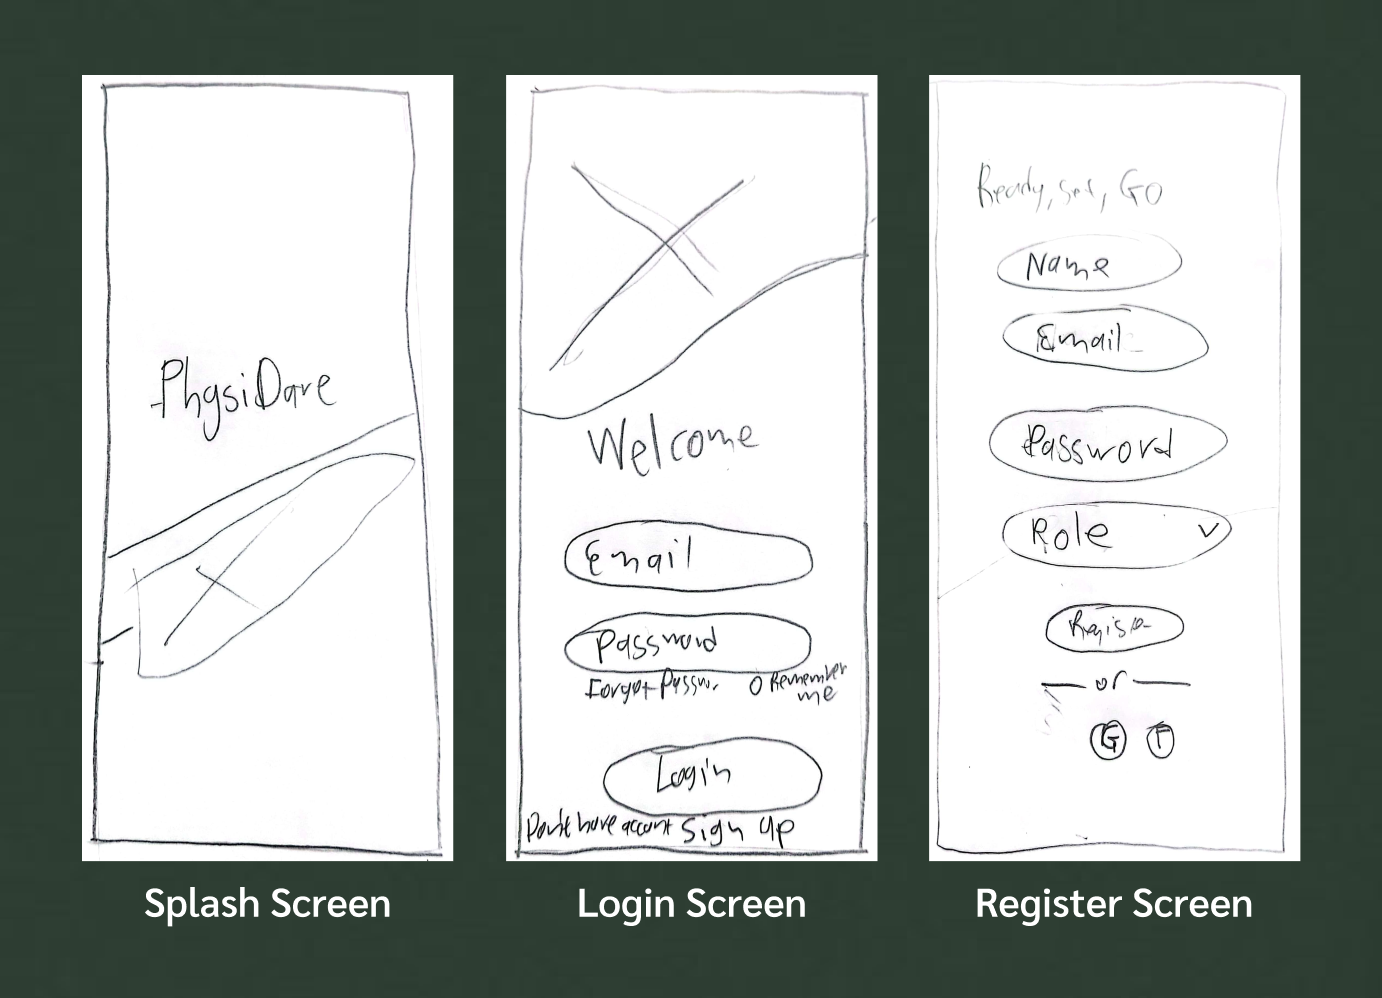 PhysiDare
Splash Screen
Welcome
Email
Password
Forgot Passw. O Remember
me
Login
Don't have account Sign Up
Login Screen
Ready, Set, Go
Name
Email
Password
Role
Register
or
G F
Register Screen